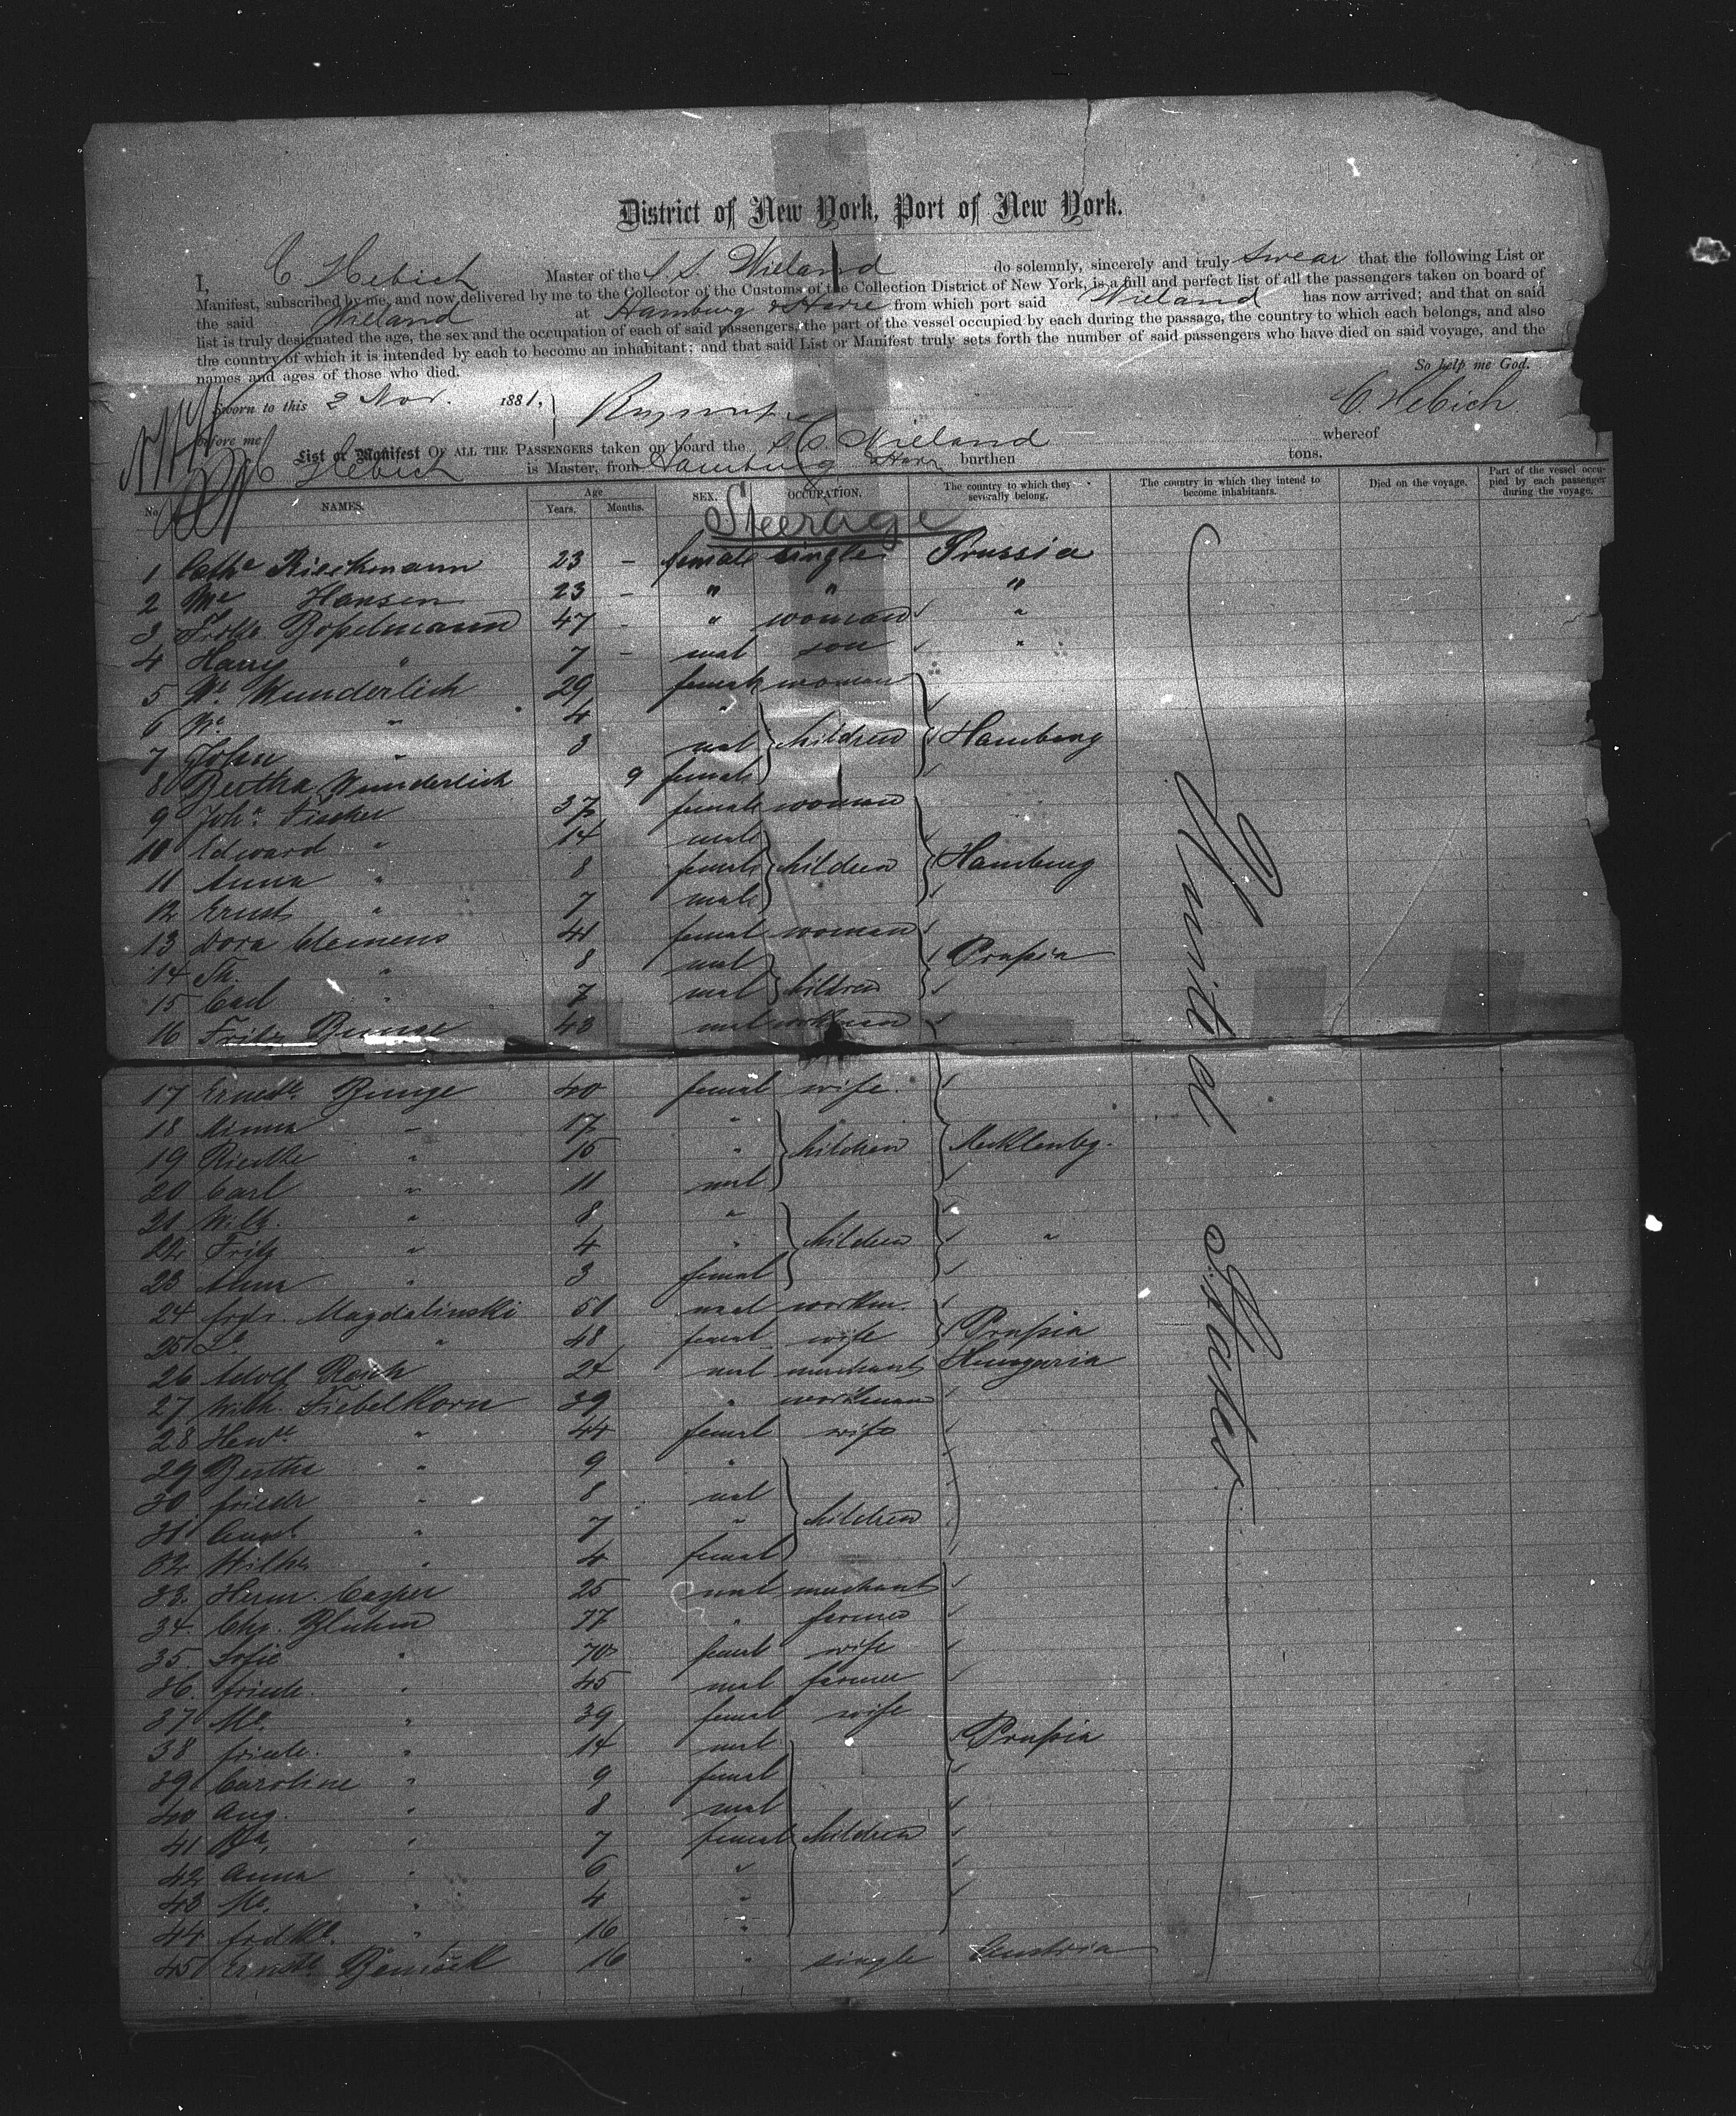 District of New York, Port of New York.
I, C. Hebich Master of the S. S. Wieland do solemnly, sincerely and truly swear that the following List or
Manifest, subscribed by me, and now delivered by me to the Collector of the Customs of the Collection District of New York, is a full and perfect list of all the passengers taken on board of
the said Wieland at Hamburg & Havre from which port said Wieland has now arrived; and that on said
list is truly designated the age, the sex and the occupation of each of said passengers, the part of the vessel occupied by each during the passage, the country to which each belongs, and also
the country of which it is intended by each to become an inhabitant; and that said List or Manifest truly sets forth the number of said passengers who have died on said voyage, and the
names and ages of those who died.
So help me God.
Sworn to this 2 Nov. 1881,
C Hebich
before me
List or Manifest OF ALL THE PASSENGERS taken on board the S.S. Wieland whereof
C Hebich is Master, from Hamburg & Havre burthen tons.
No. NAMES. Age Years. Months. SEX. OCCUPATION. The country to which they severally belong. The country in which they intend to become inhabitants. Died on the voyage. Part of the vessel occupied by each passenger during the voyage.
Steerage
1 Cathe Rieckmann 23 - female single Prussia
2 Me Hansen 23 - " " "
3 Bosselmann 47 - " woman "
4 Harry " 7 - mal son "
5 Wunderlich 29 female woman
6 " 4 "
7 John " 3 mal children Hamburg
8 Bertha Wunderlich 9 female
9 Joh. Fischer 37 female woman
10 Edward " 14 male
11 Anna " 8 female children Hamburg
12 Ernst " 7 male
13 Dora Clemens 41 femal woman
14 Th. " 8 mal Prussia
15 Carl " 7 mal children
16 Fritz Bunge 43 mal workman
17 Erneste Bunge 40 femal wife
18 Minna " 17 "
19 Rieckke " 15 " children Mecklenbg.
20 Carl " 11 mal
21 Wilh. " 8 "
22 Fritz " 4 " children "
23 Anna " 3 femal
24 Frdr. Magdalinski 51 mal workm.
25 Le " 48 femal wife Prussia
26 Adolf Reich 24 mal merchant Hungaria
27 Wilh. Fiebelkorn 39 " workman
28 Henrtt " 44 femal wife
29 Bertha " 9 "
30 friedr " 8 mal
31 " 7 " children
32 Wilhe " 4 femal
33 Herm. Casper 25 mal merchant
34 Chr. Bluhm 77 " farmer
35 Sofie " 70 femal wife
36 friedr. " 45 mal farmer
37 Me. " 39 femal wife
38 friedr. " 14 mal Prussia
39 Caroline " 9 femal
40 Aug. " 8 mal
41 " 7 femal children
42 Anna " 6 "
43 Me. " 4 "
44 " 16 "
45 Ernste 16 " single Austria
United States